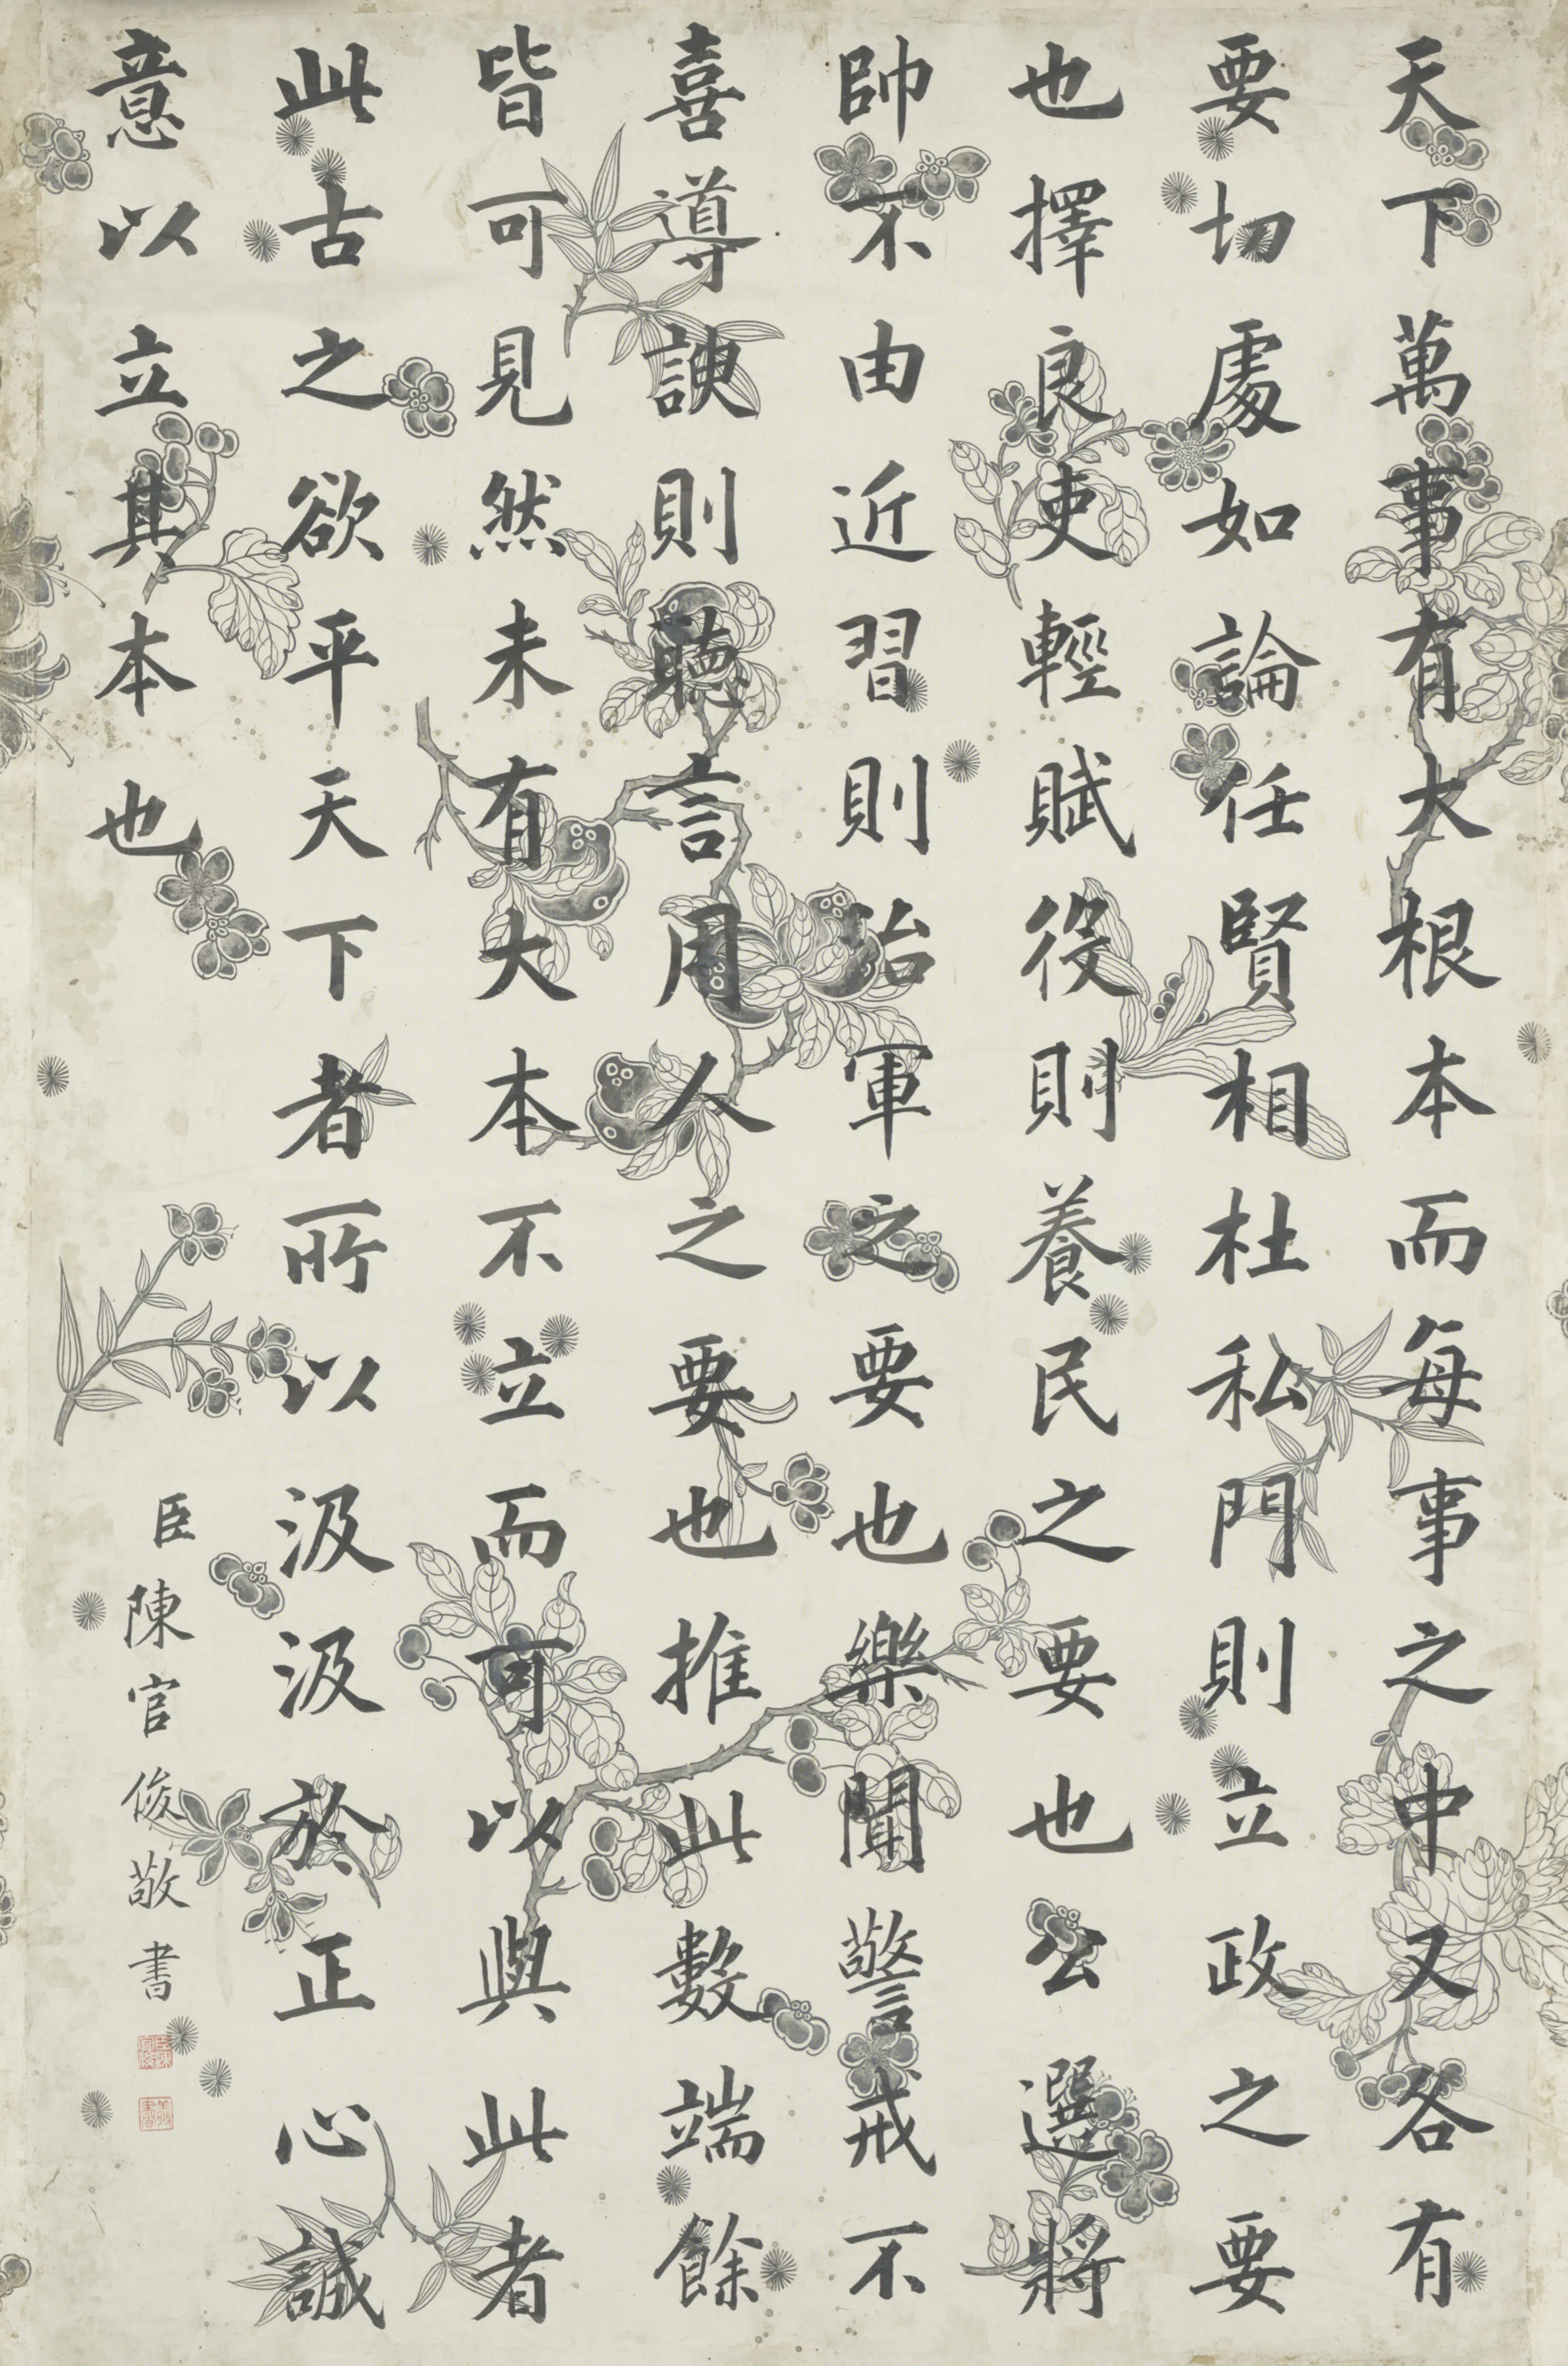 天下萬事有大根本而每事之中又各有
要切處如論任賢相杜私門則立政之要
也擇良吏輕賦役則養民之要也公選將
帥不由近習則治軍之要也樂聞警戒不
喜導諛則聽言用人之要也推此數端餘
皆可見然未有大本不立而可以與此者
此古之欲平天下者所以汲汲於正心誠
意以立其本也
臣陳官俊敬書